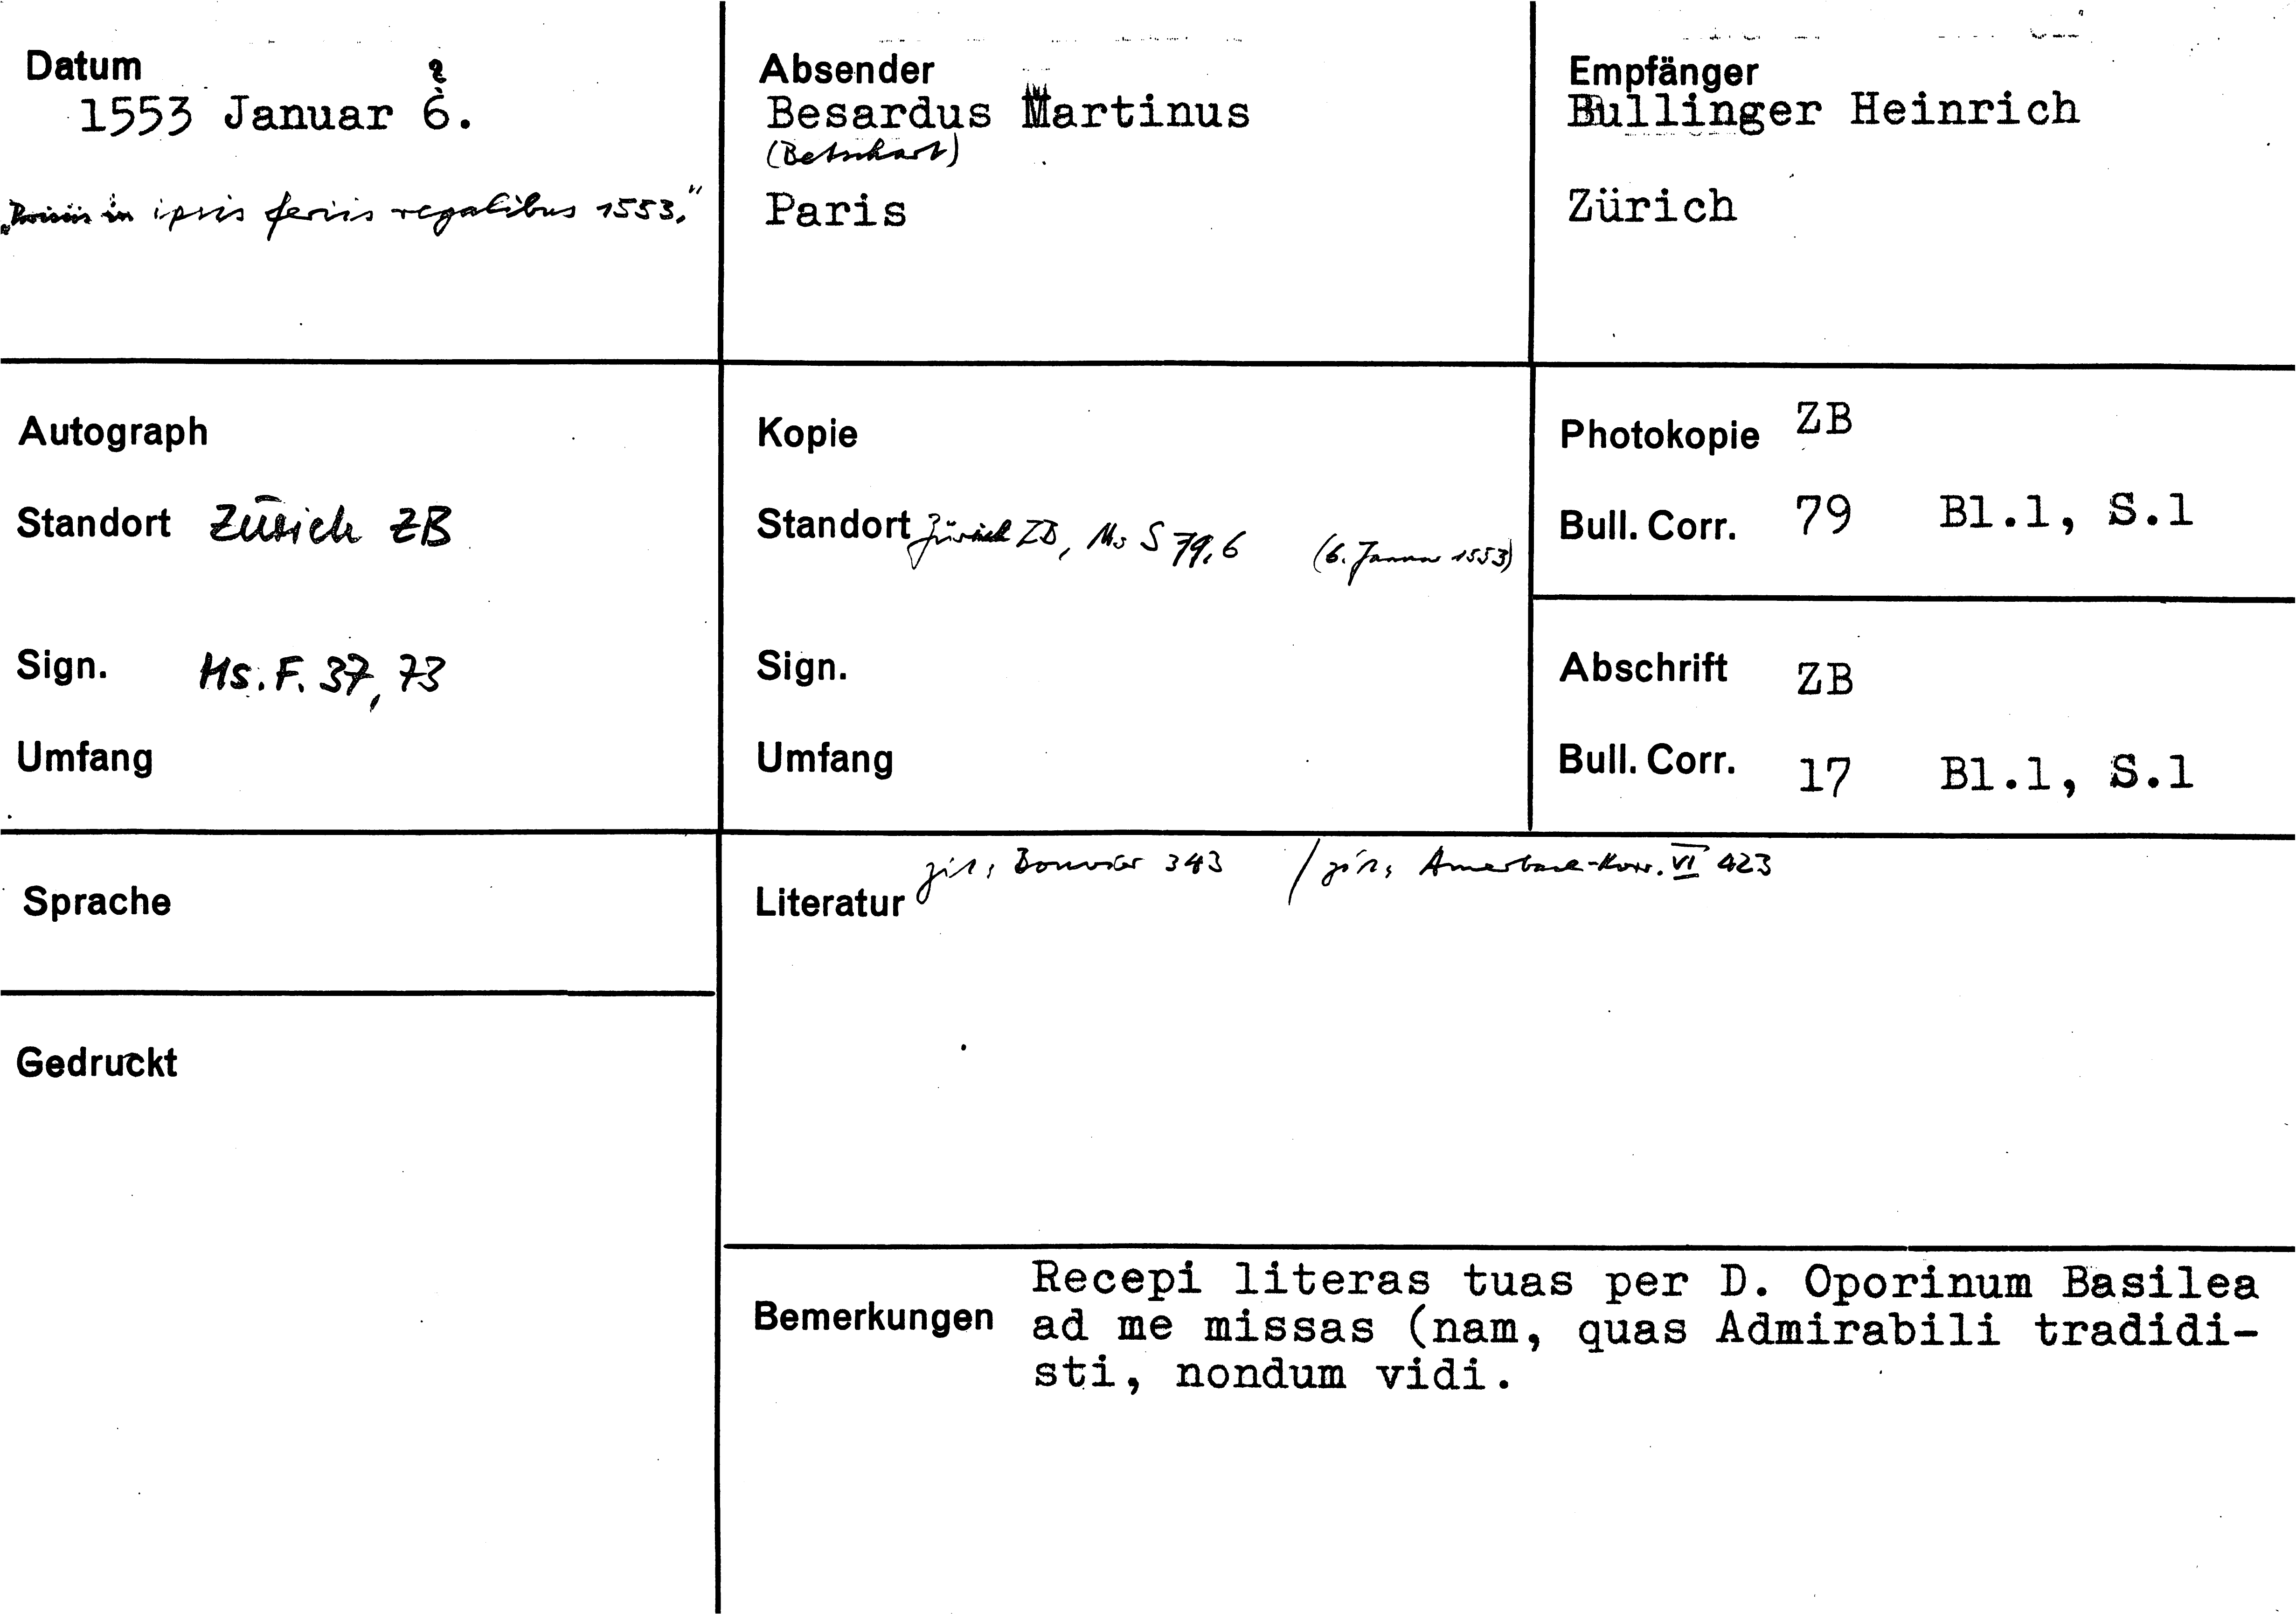 Datum
?
1553 Januar 6.
"Parisiis in ipsis feriis regalibus 1553."
Absender
Besardus Martinus
(Betschart)
Paris
Empfänger
Bullinger Heinrich
Zürich
Autograph
Standort Zürich ZB
Sign. Ms. F. 37, 73
Umfang
Kopie
Standort Zürich ZB, Ms S 79,6 (6. Januar 1553)
Sign.
Umfang
Photokopie ZB
Bull. Corr. 79 Bl.1, S.1
Abschrift ZB
Bull. Corr. 17 Bl.1, S.1
Sprache
Gedruckt
Literatur zit. Bouvier 343 / zit. Amerbach-Korr. VI 423
Bemerkungen
Recepi literas tuas per D. Oporinum Basilea
ad me missas (nam, quas Admirabili tradidi-
sti, nondum vidi.